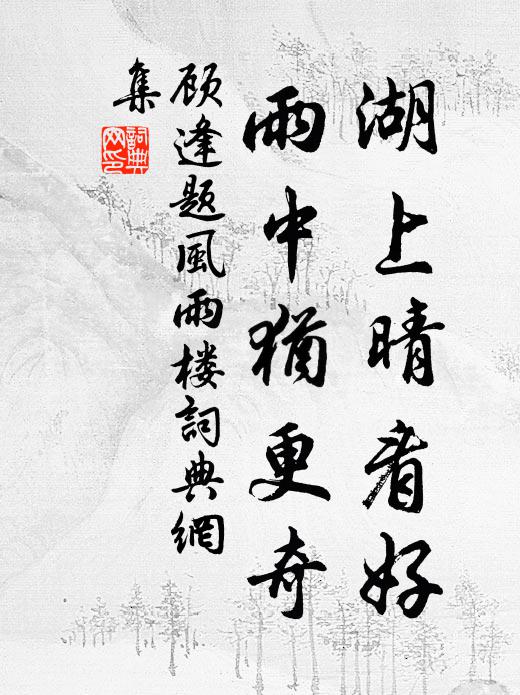 湖上晴看好
雨中猶更奇
顾逢题風雨楼詞典網
集
詞典网印